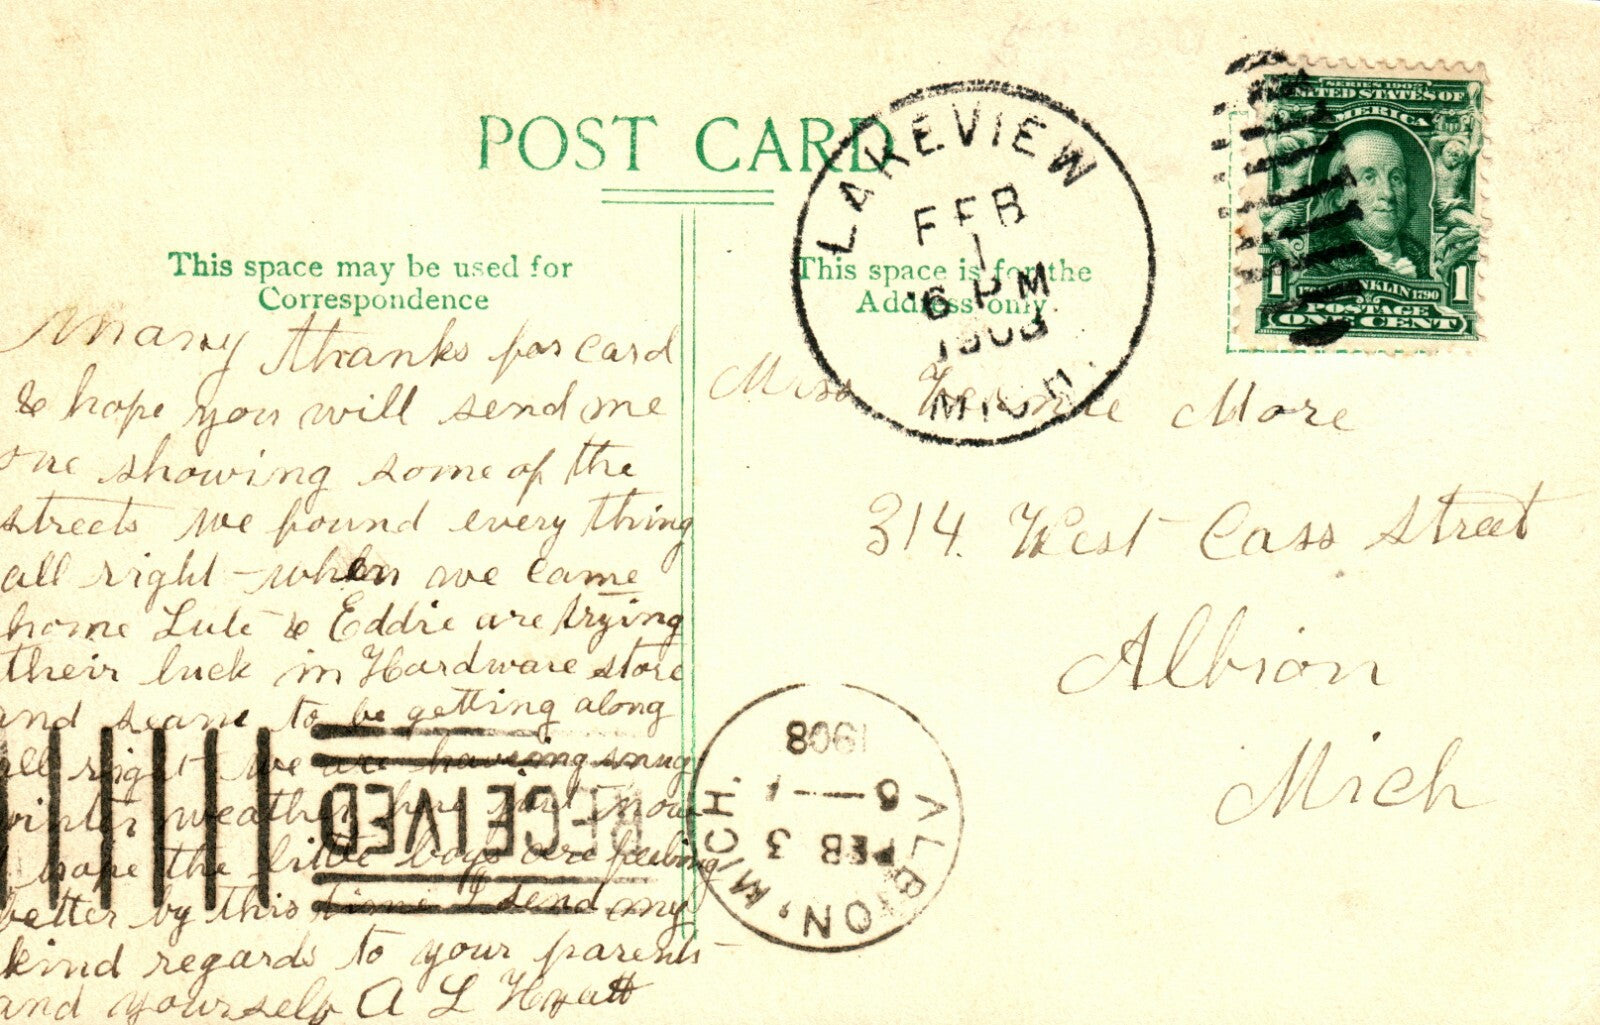 POST CARD
This space may be used for
Correspondence
This space is for the
Address only.
LAKEVIEW
FEB
1
6 PM
1908
MICH.
SERIES 1902
UNITED STATES OF
AMERICA
FRANKLIN 1790
1 1
POSTAGE
ONE CENT
Many thanks for card
& hope you will send me
one showing some of the
streets we found every thing
all right - when we came
home Lute & Eddie are trying
their luck in Hardware store
and seame to be getting along
all right we are having snug
winter weather here just now
I hope the little boys are feeling
better by this time I send my
kind regards to your parents
and yourself A L Hyatt
Miss More
314. West Cass Street
Albion
Mich
RECEIVED
ALBION, MICH.
FEB 3
8 - 1
1908